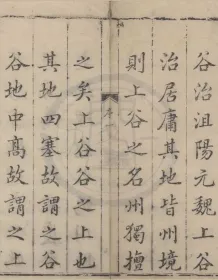 谷治沮陽元魏上谷
治居庸其地皆州境
則上谷之名州獨擅
之矣上谷谷之上也
其地四塞故謂之谷
谷地中髙故謂之上